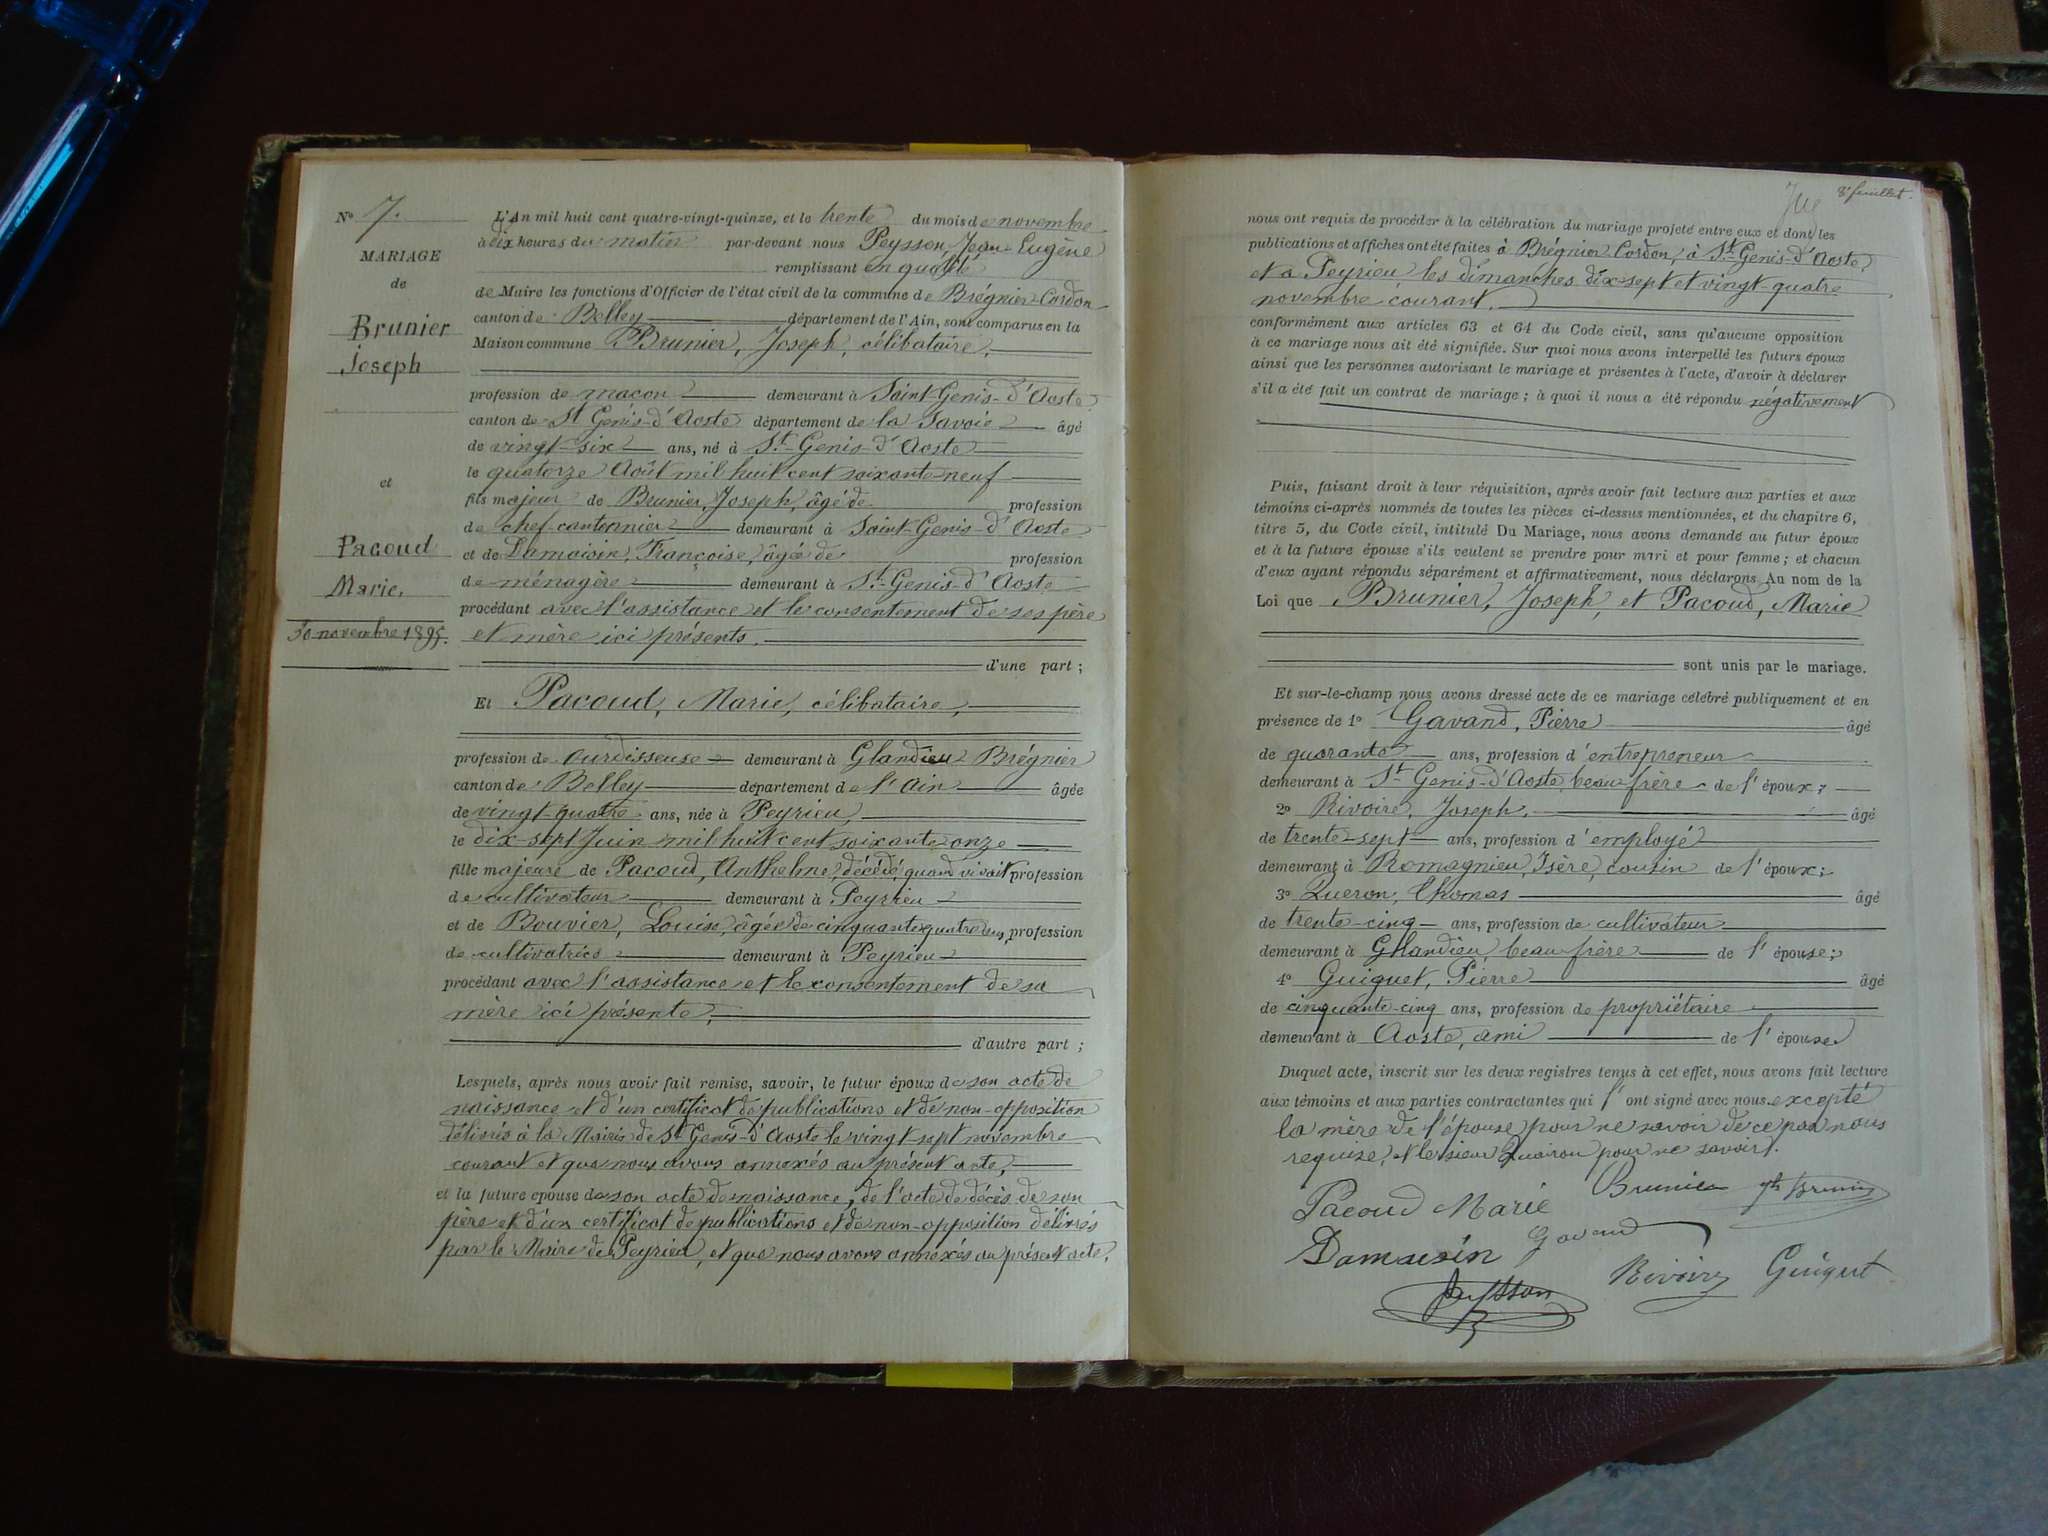 N° 7.
MARIAGE
de
Brunier
Joseph
et
Pacoud
Marie.
30 novembre 1895.
L'An mil huit cent quatre-vingt-quinze, et le trente du mois de novembre
à dix heures du matin par-devant nous Peysson, Jean Eugène
remplissant en qualité
de Maire les fonctions d'Officier de l'état civil de la commune de Brégnier-Cordon
canton de Belley département de l'Ain, sont comparus en la
Maison commune Brunier, Joseph, célibataire,
profession de maçon demeurant à Saint-Genis-d'Aoste
canton de St Genis-d'Aoste département de la Savoie âgé
de vingt-six ans, né à St-Genis-d'Aoste
le quatorze Août mil huit cent soixante-neuf
fils majeur de Brunier, Joseph, âgé de profession
de chef-cantonnier demeurant à Saint-Genis-d'Aoste
et de Damaisin, Françoise, âgée de profession
de ménagère demeurant à St-Genis-d'Aoste
procédant avec l'assistance et le consentement de ses père
et mère ici présents.
d'une part ;
Et Pacoud, Marie, célibataire,
profession de ourdisseuse demeurant à Glandieu Brégnier
canton de Belley département de l'Ain âgée
de vingt-quatre ans, née à Peyrieu,
le dix-sept Juin mil huit cent soixante onze
fille majeure de Pacoud, Anthelme, décédé, quand vivait profession
de cultivateur demeurant à Peyrieu
et de Bouvier, Louise, âgée de cinquante quatre ans, profession
de cultivatrice demeurant à Peyrieu
procédant avec l'assistance et le consentement de sa
mère ici présente,
d'autre part ;
Lesquels, après nous avoir fait remise, savoir, le futur époux de son acte de
naissance et d'un certificat de publications et de non-opposition
délivrés à la Mairie de St-Genis-d'Aoste le vingt sept novembre
courant et que nous avons annexés au présent acte,
et la future épouse de son acte de naissance, de l'acte de décès de son
père et d'un certificat de publications et de non-opposition délivrés
par le Maire de Peyrieu, et que nous avons annexés au présent acte.
8e feuillet.
nous ont requis de procéder à la célébration du mariage projeté entre eux et dont les
publications et affiches ont été faites à Brégnier-Cordon, à St-Genis-d'Aoste,
et à Peyrieu les dimanches dix-sept et vingt-quatre
novembre courant.
conformément aux articles 63 et 64 du Code civil, sans qu'aucune opposition
à ce mariage nous ait été signifiée. Sur quoi nous avons interpellé les futurs époux
ainsi que les personnes autorisant le mariage et présentes à l'acte, d'avoir à déclarer
s'il a été fait un contrat de mariage ; à quoi il nous a été répondu négativement
Puis, faisant droit à leur réquisition, après avoir fait lecture aux parties et aux
témoins ci-après nommés de toutes les pièces ci-dessus mentionnées, et du chapitre 6,
titre 5, du Code civil, intitulé Du Mariage, nous avons demandé au futur époux
et à la future épouse s'ils veulent se prendre pour mari et pour femme ; et chacun
d'eux ayant répondu séparément et affirmativement, nous déclarons Au nom de la
Loi que Brunier, Joseph, et Pacoud, Marie
sont unis par le mariage.
Et sur-le-champ nous avons dressé acte de ce mariage célébré publiquement et en
présence de 1° Gavand, Pierre âgé
de quarante ans, profession d'entrepreneur
demeurant à St-Genis-d'Aoste, beau-frère de l'époux ;
2° Rivoire, Joseph, âgé
de trente-sept ans, profession d'employé
demeurant à Romagnieu, Isère, cousin de l'époux ;
3° Queron, Thomas âgé
de trente-cinq ans, profession de cultivateur
demeurant à Glandieu beau frère de l'épouse ;
4° Guiguet, Pierre âgé
de cinquante-cinq ans, profession de propriétaire
demeurant à Aoste, ami de l'épouse
Duquel acte, inscrit sur les deux registres tenus à cet effet, nous avons fait lecture
aux témoins et aux parties contractantes qui l'ont signé avec nous excepté
la mère de l'épouse pour ne savoir de ce par nous
requise, et le sieur Quairon pour ne savoir.
Pacoud Marie Brunier Jh Brunier
Damaisin Gavand
Rivoire Guiguet
Peysson